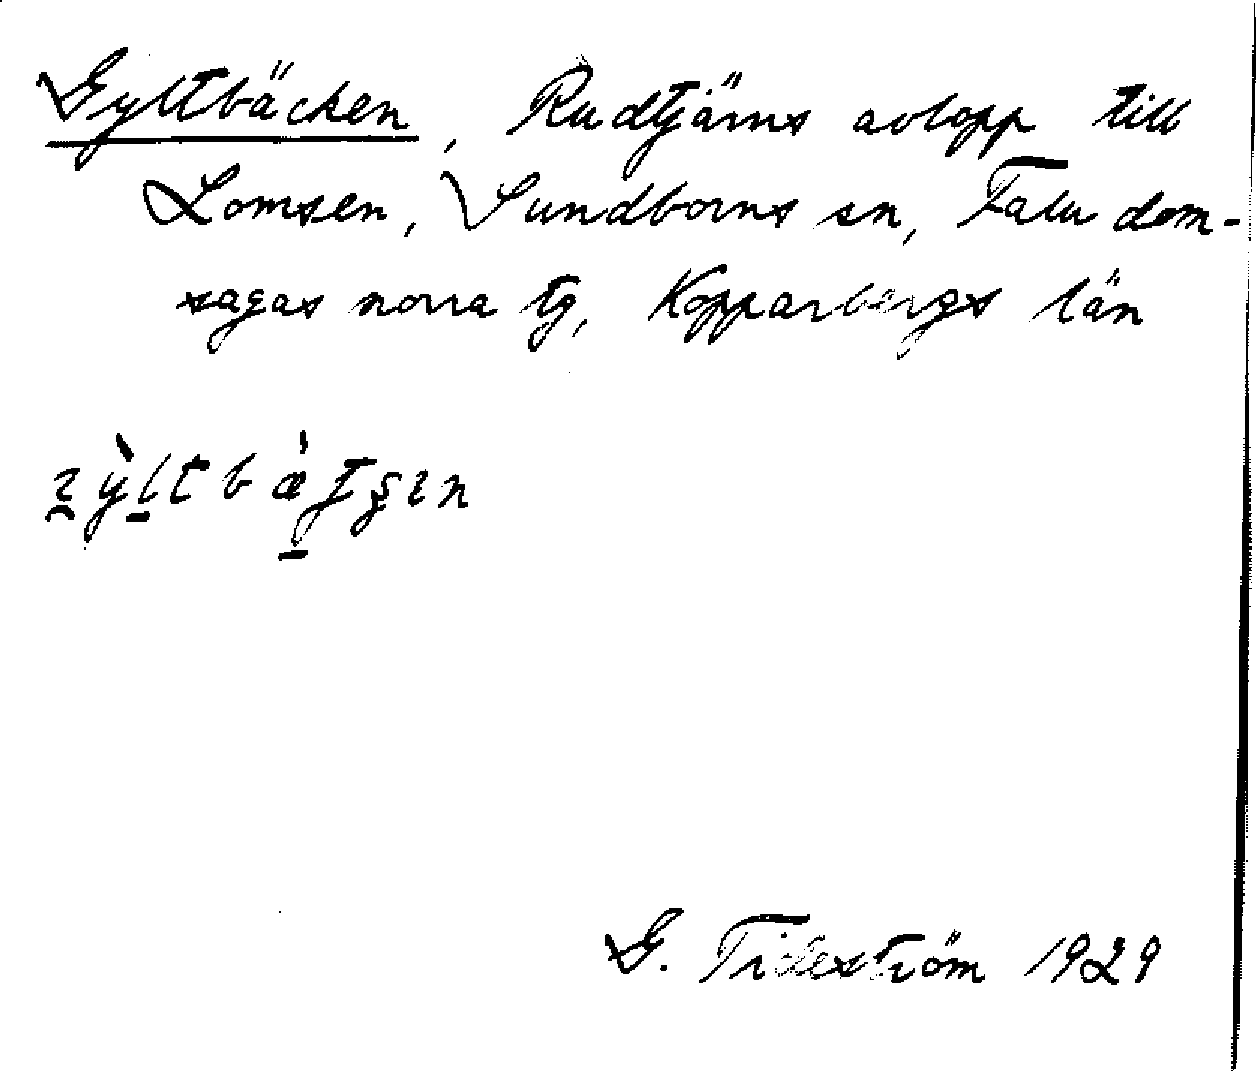 Gyltbäcken, Rudtjärns avlopp till
Lomsen, Sundborns sn, Falu dom-
sagas norra tg, Kopparbergs län
G. Tideström 1929